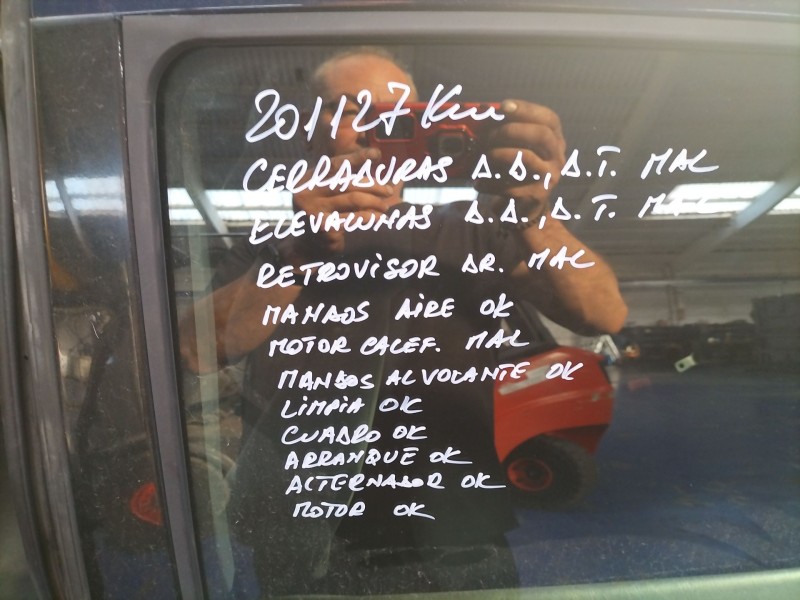 201127 Km
CERRADURAS D.D., D.T. MAL
ELEVALUNAS D.D., D.T. MAL
RETROVISOR DR. MAL
MANDOS AIRE OK
MOTOR CALEF. MAL
MANDOS AL VOLANTE OK
LIMPIA OK
CUADRO OK
ARRANQUE OK
ALTERNADOR OK
MOTOR OK